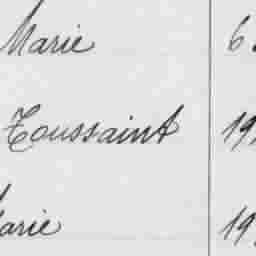 Marie 6
Toussaint 19
arie 19